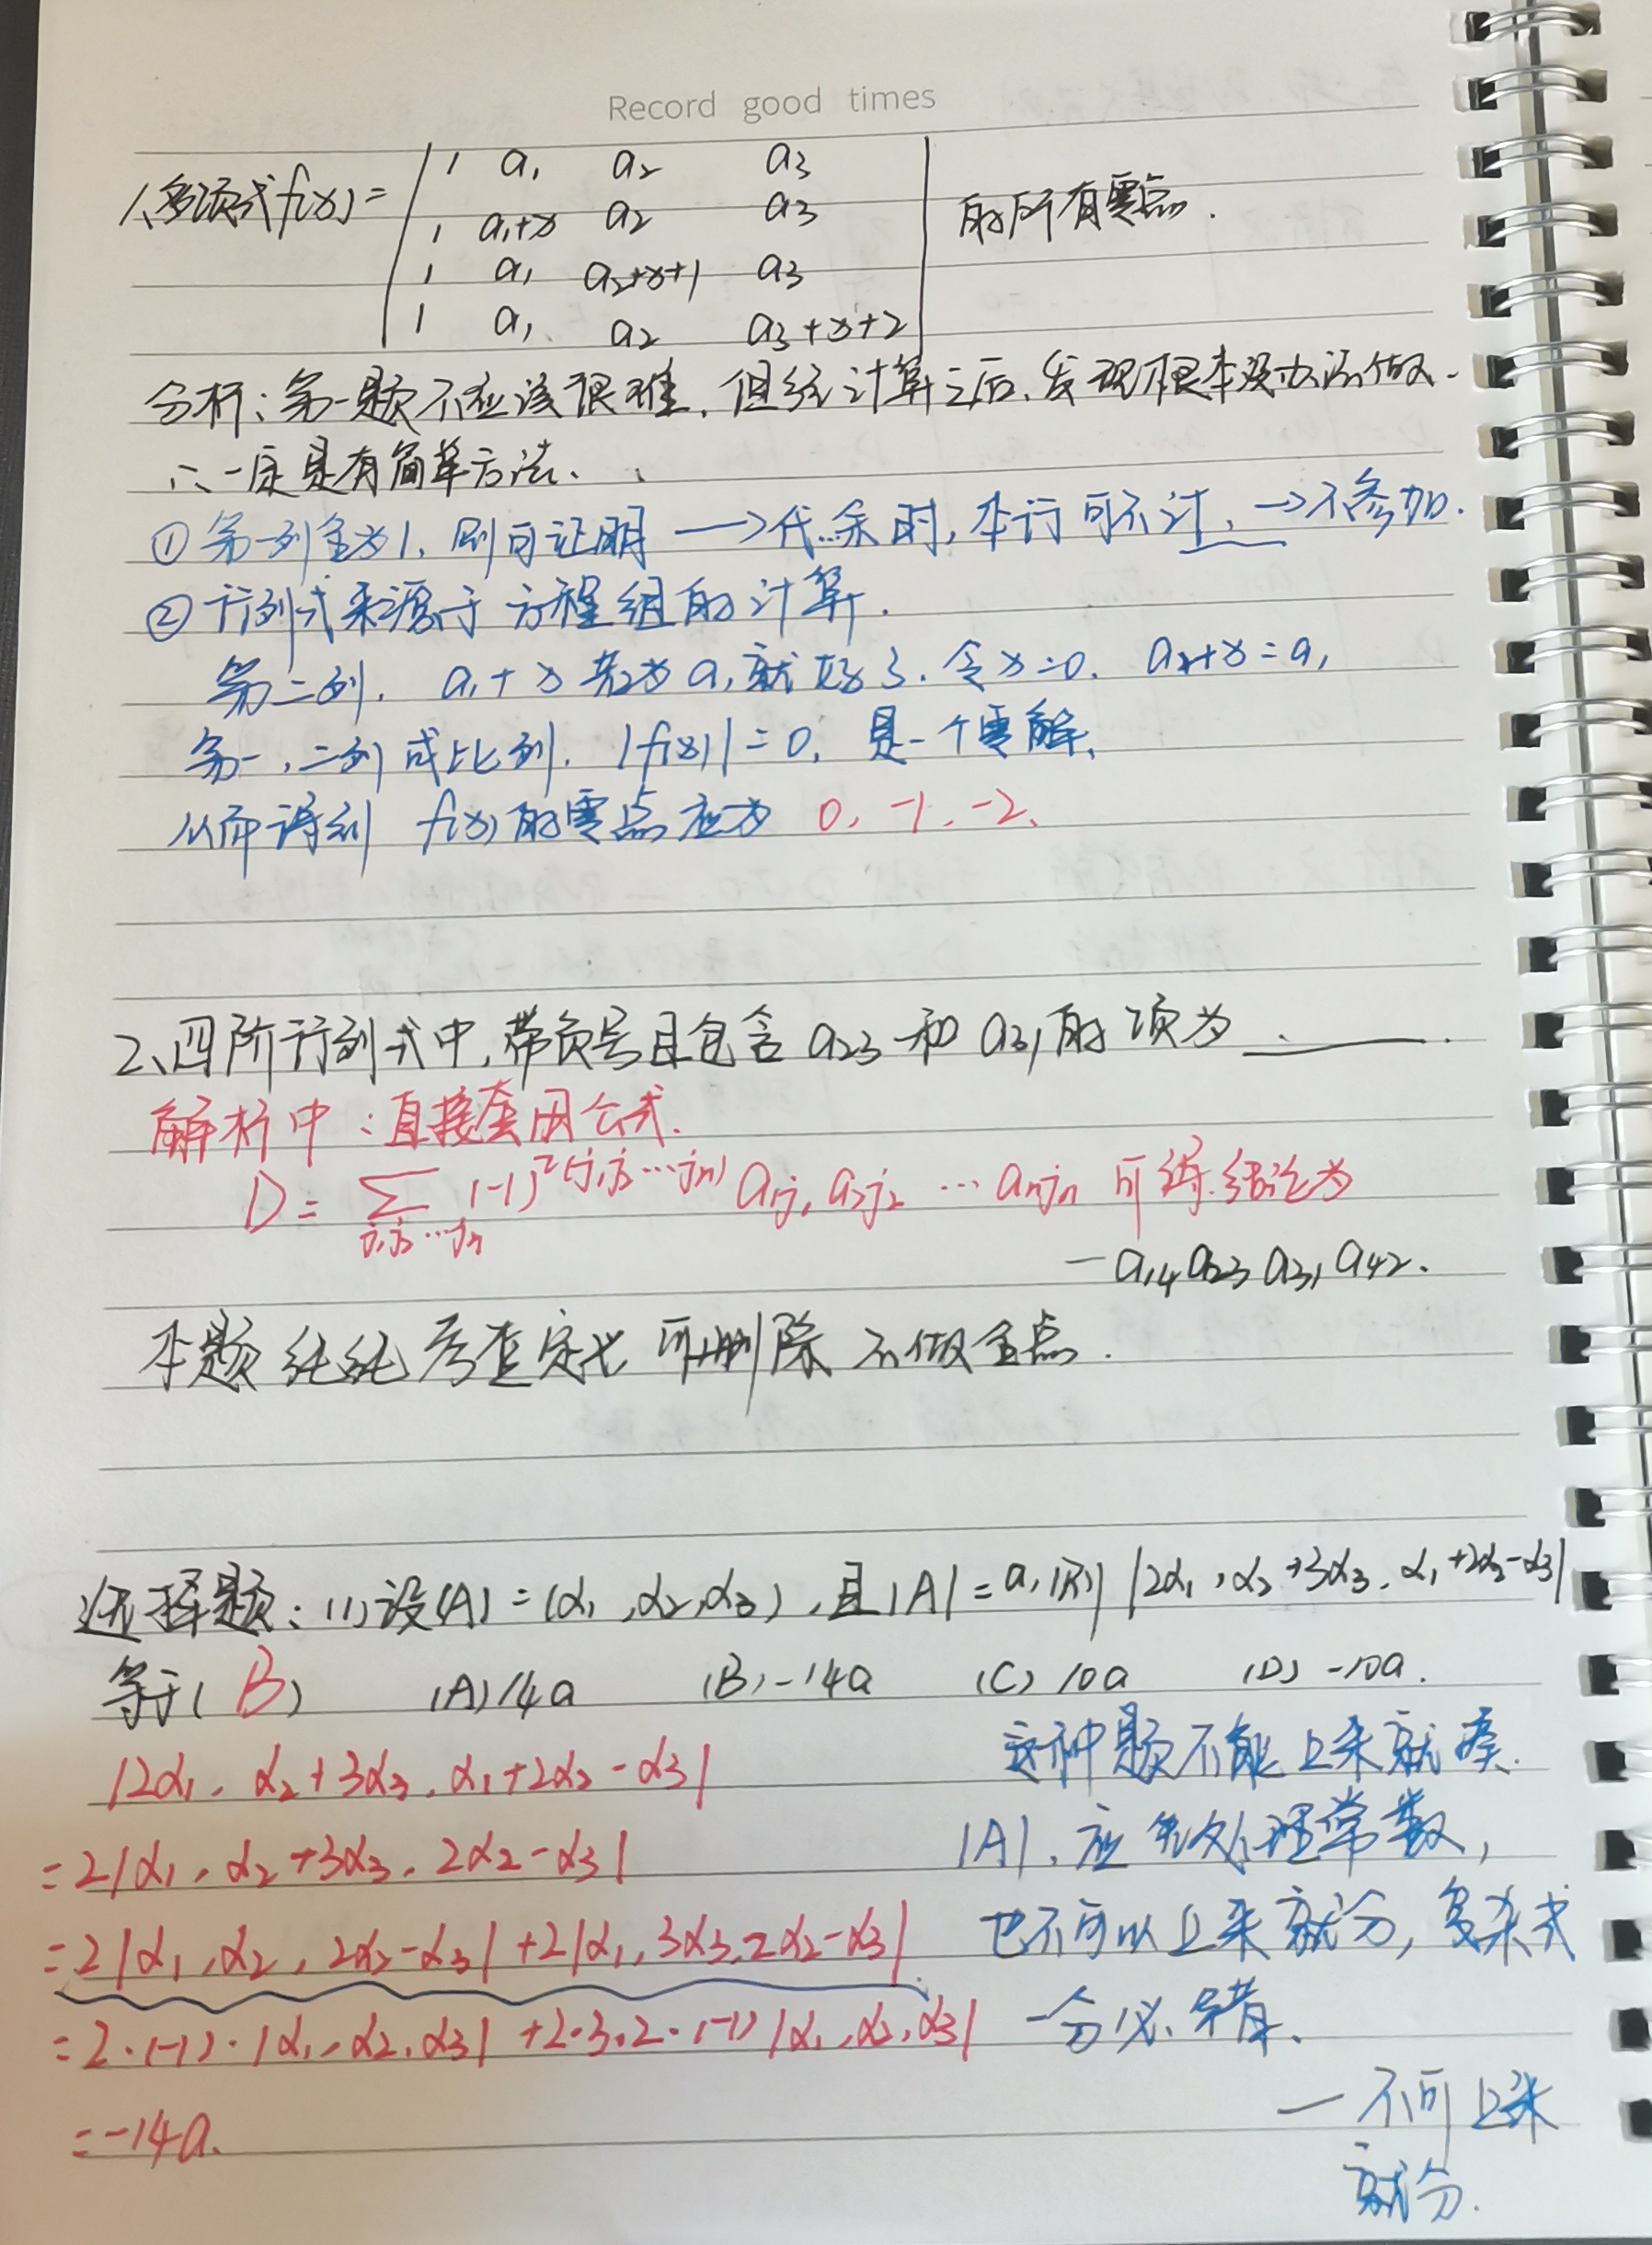 Record good times
1、多项式f(x)= | 1 a₁ a₂ a₃ | 的所有零点.
| 1 a₁+x a₂ a₃ |
| 1 a₁ a₂+x+1 a₃ |
| 1 a₁ a₂ a₃+x+2 |
分析:第一题不应该很难,但经计算之后,发现根本没办法做.
∴一定是有简单方法.
①第一列全为1,则可证明→代余时,本行可不计,→不参加.
②行列式来源于方程组的计算.
第二列. a₁+x 若为a₁就好了.令x=0. a₂+x=a₁
第一,二列成比列. |f(x)|=0, 是一个零解.
从而得到 f(x)的零点应为 0,-1,-2、
2、四阶行列式中,带负号且包含a₂₃和a₃₁的项为______.
解析中:直接套用公式.
D=∑(-1)^τ(j₁j₂…jn) a₁j₁ a₂j₂ … anjn 可得结论为
j₁j₂…jn
-a₁₄a₂₃a₃₁a₄₂.
本题纯纯考查定义 可删除 不做重点.
选择题:(1)设(A)=(α₁,α₂,α₃),且|A|=a,则|2α₁,α₂+3α₃,α₁+2α₂-α₃|
等于(B) (A)14a (B)-14a (C)10a (D)-10a.
|2α₁,α₂+3α₃,α₁+2α₂-α₃| 这种题不能上来就凑.
=2|α₁,α₂+3α₃,2α₂-α₃| |A|,应先处理常数,
=2|α₁,α₂,2α₂-α₃|+2|α₁,3α₃,2α₂-α₃| 也不可以上来就分,复杂式
=2·(-1)·|α₁,α₂,α₃|+2·3·2·(-1)|α₁,α₂,α₃| 一分必错.
=-14a. — 不可上来
就分.